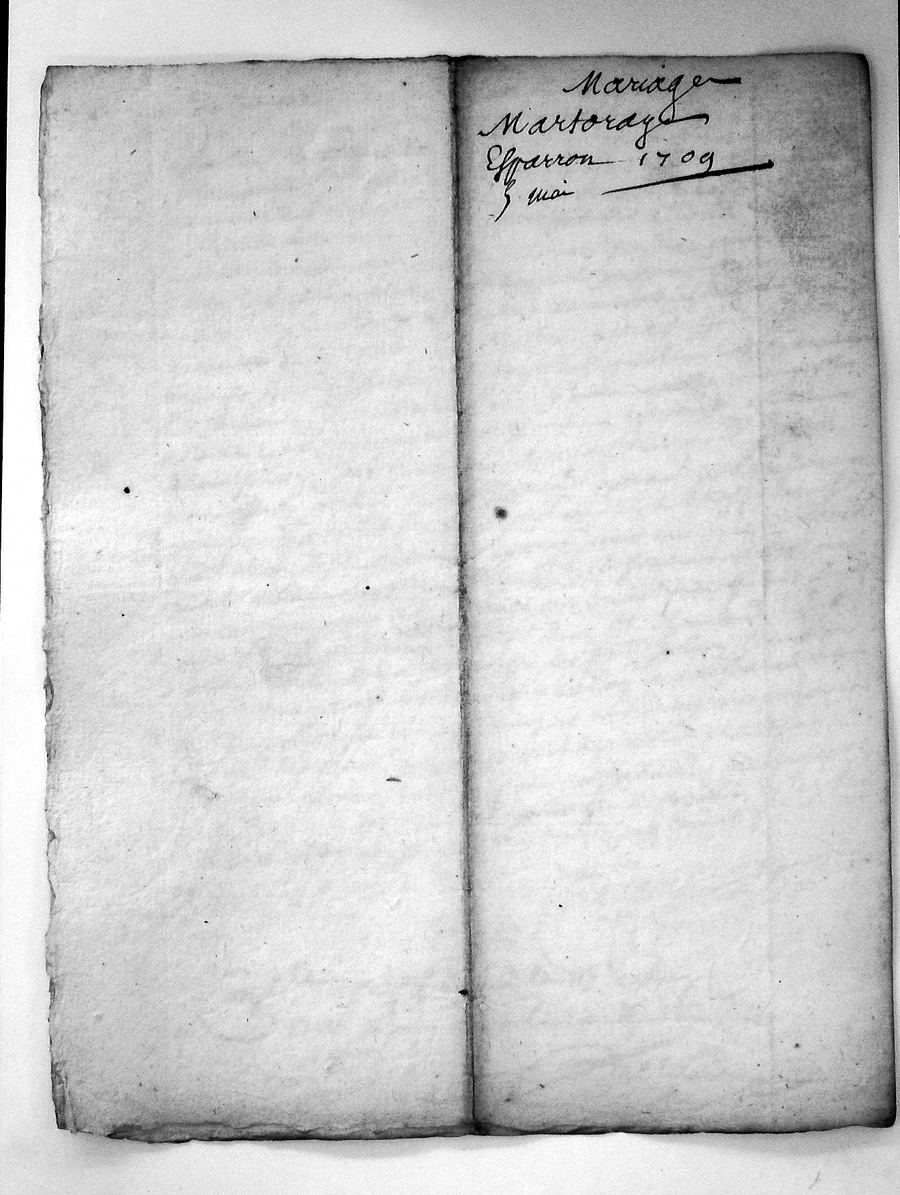 Mariage
Martoraye
Esparron 1709
5 mai